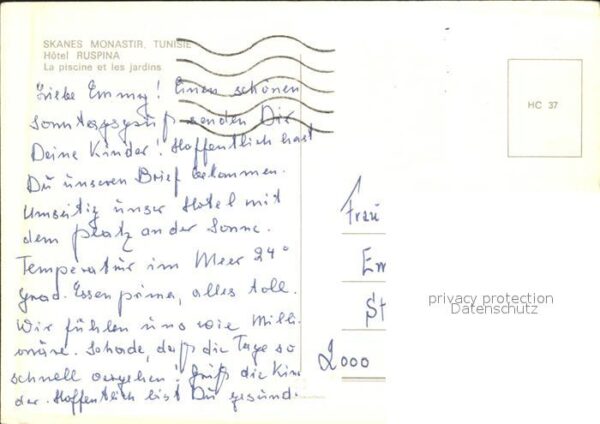 SKANES MONASTIR, TUNISIE
Hôtel RUSPINA
La piscine et les jardins
HC 37
Liebe Emmy! Einen schönen
Sonntagsgruß senden Dir
Deine Kinder! Hoffentlich hast
Du unseren Brief bekommen.
Umseitig unser Hotel mit
dem Platz an der Sonne.
Temperatur im Meer 24°
Grad. Essen prima, alles toll.
Wir fühlen uns wie Milli-
onäre. Schade, daß die Tage so
schnell vergehen! Grüß die Kin
der. Hoffentlich bist Du gesund.
Frau
Em
St
2000
privacy protection
Datenschutz